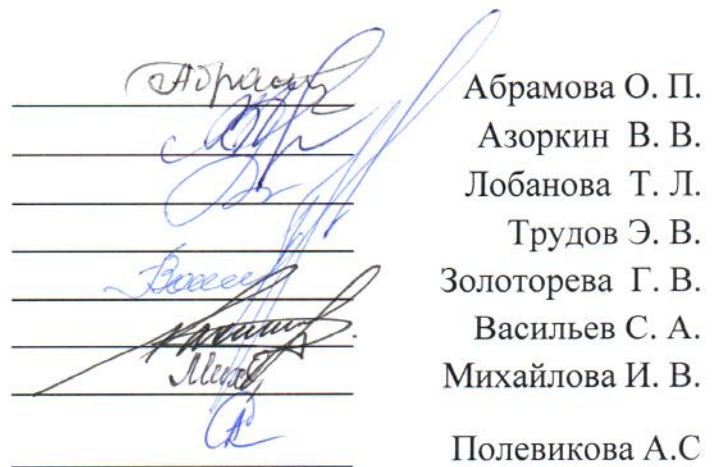 Абрамова О. П.
Азоркин В. В.
Лобанова Т. Л.
Трудов Э. В.
Золоторева Г. В.
Васильев С. А.
Михайлова И. В.
Полевикова А.С